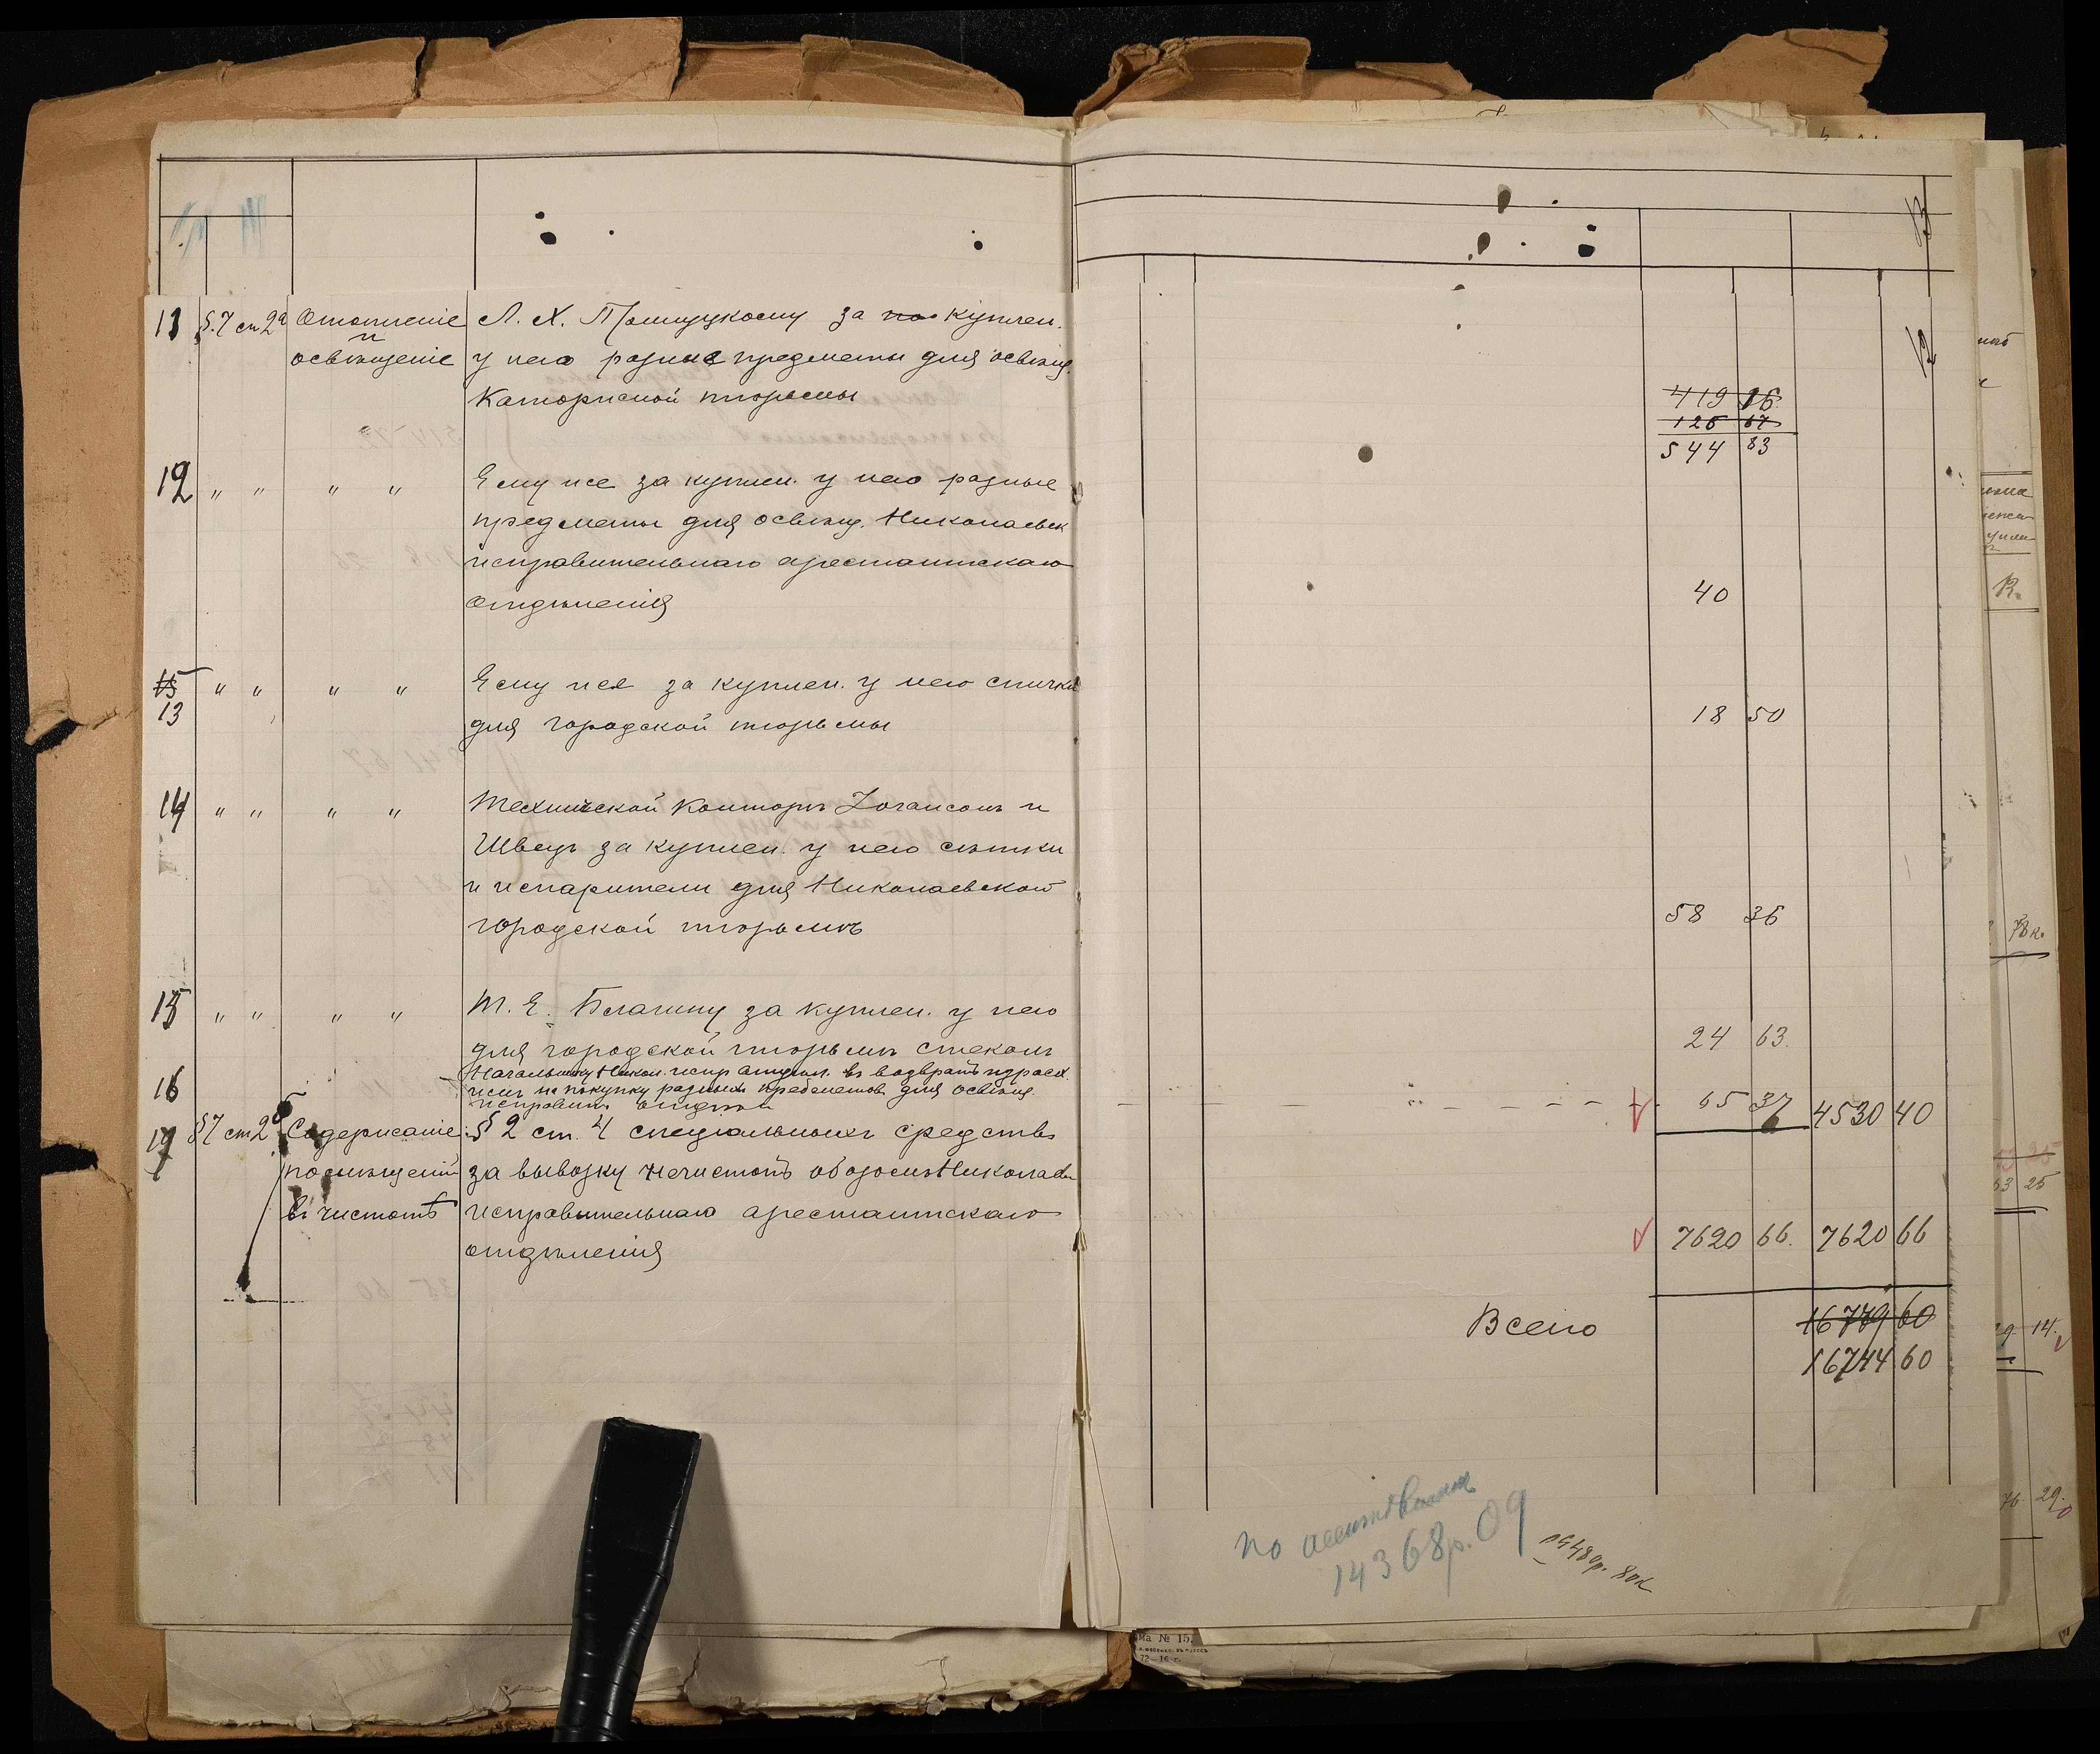 11 §.7 ст 2а Отопленіе Л. Х. куплен.
и
освѣщеніе у него разные предметы для освѣщ.
Каторжной тюрьмы
419 16
125 67
544 83
12 " " " " Ему же за куплен. у него разные
предметы для освѣщ. Николаевск
исправительнаго арестантскаго
отдѣленія 40
15 " " " " Ему же за куплен. у него спички
13
для городской тюрьмы 18 50
14 " " " " Технической Конторѣ Іогансонъ и
Швецъ за куплен. у него сѣтки
и испарители для Николаевской
городской тюрьмѣ 58 36
15 " " " " Т. Е. Благину за куплен. у него
для городской тюрьмѣ стеколъ 24 63.
16 Начальнику Никол. испр отдѣл. въ возвратъ израсх.
имъ на покупку разныхъ предметовъ для освѣщ.
исправит. отдѣл 65 37 4530 40
17 §7 ст 2б Содержаніе § 2 ст. 4 спеціальныхъ средствъ
помѣщеній за вывозку нечистотъ обозомъ Николаев
въ чистотѣ исправительнаго арестантскаго
отдѣленія 7620 66. 7620 66
Всего 16779 60
16744 60
по
14368р. 09
80к
ма № 15.